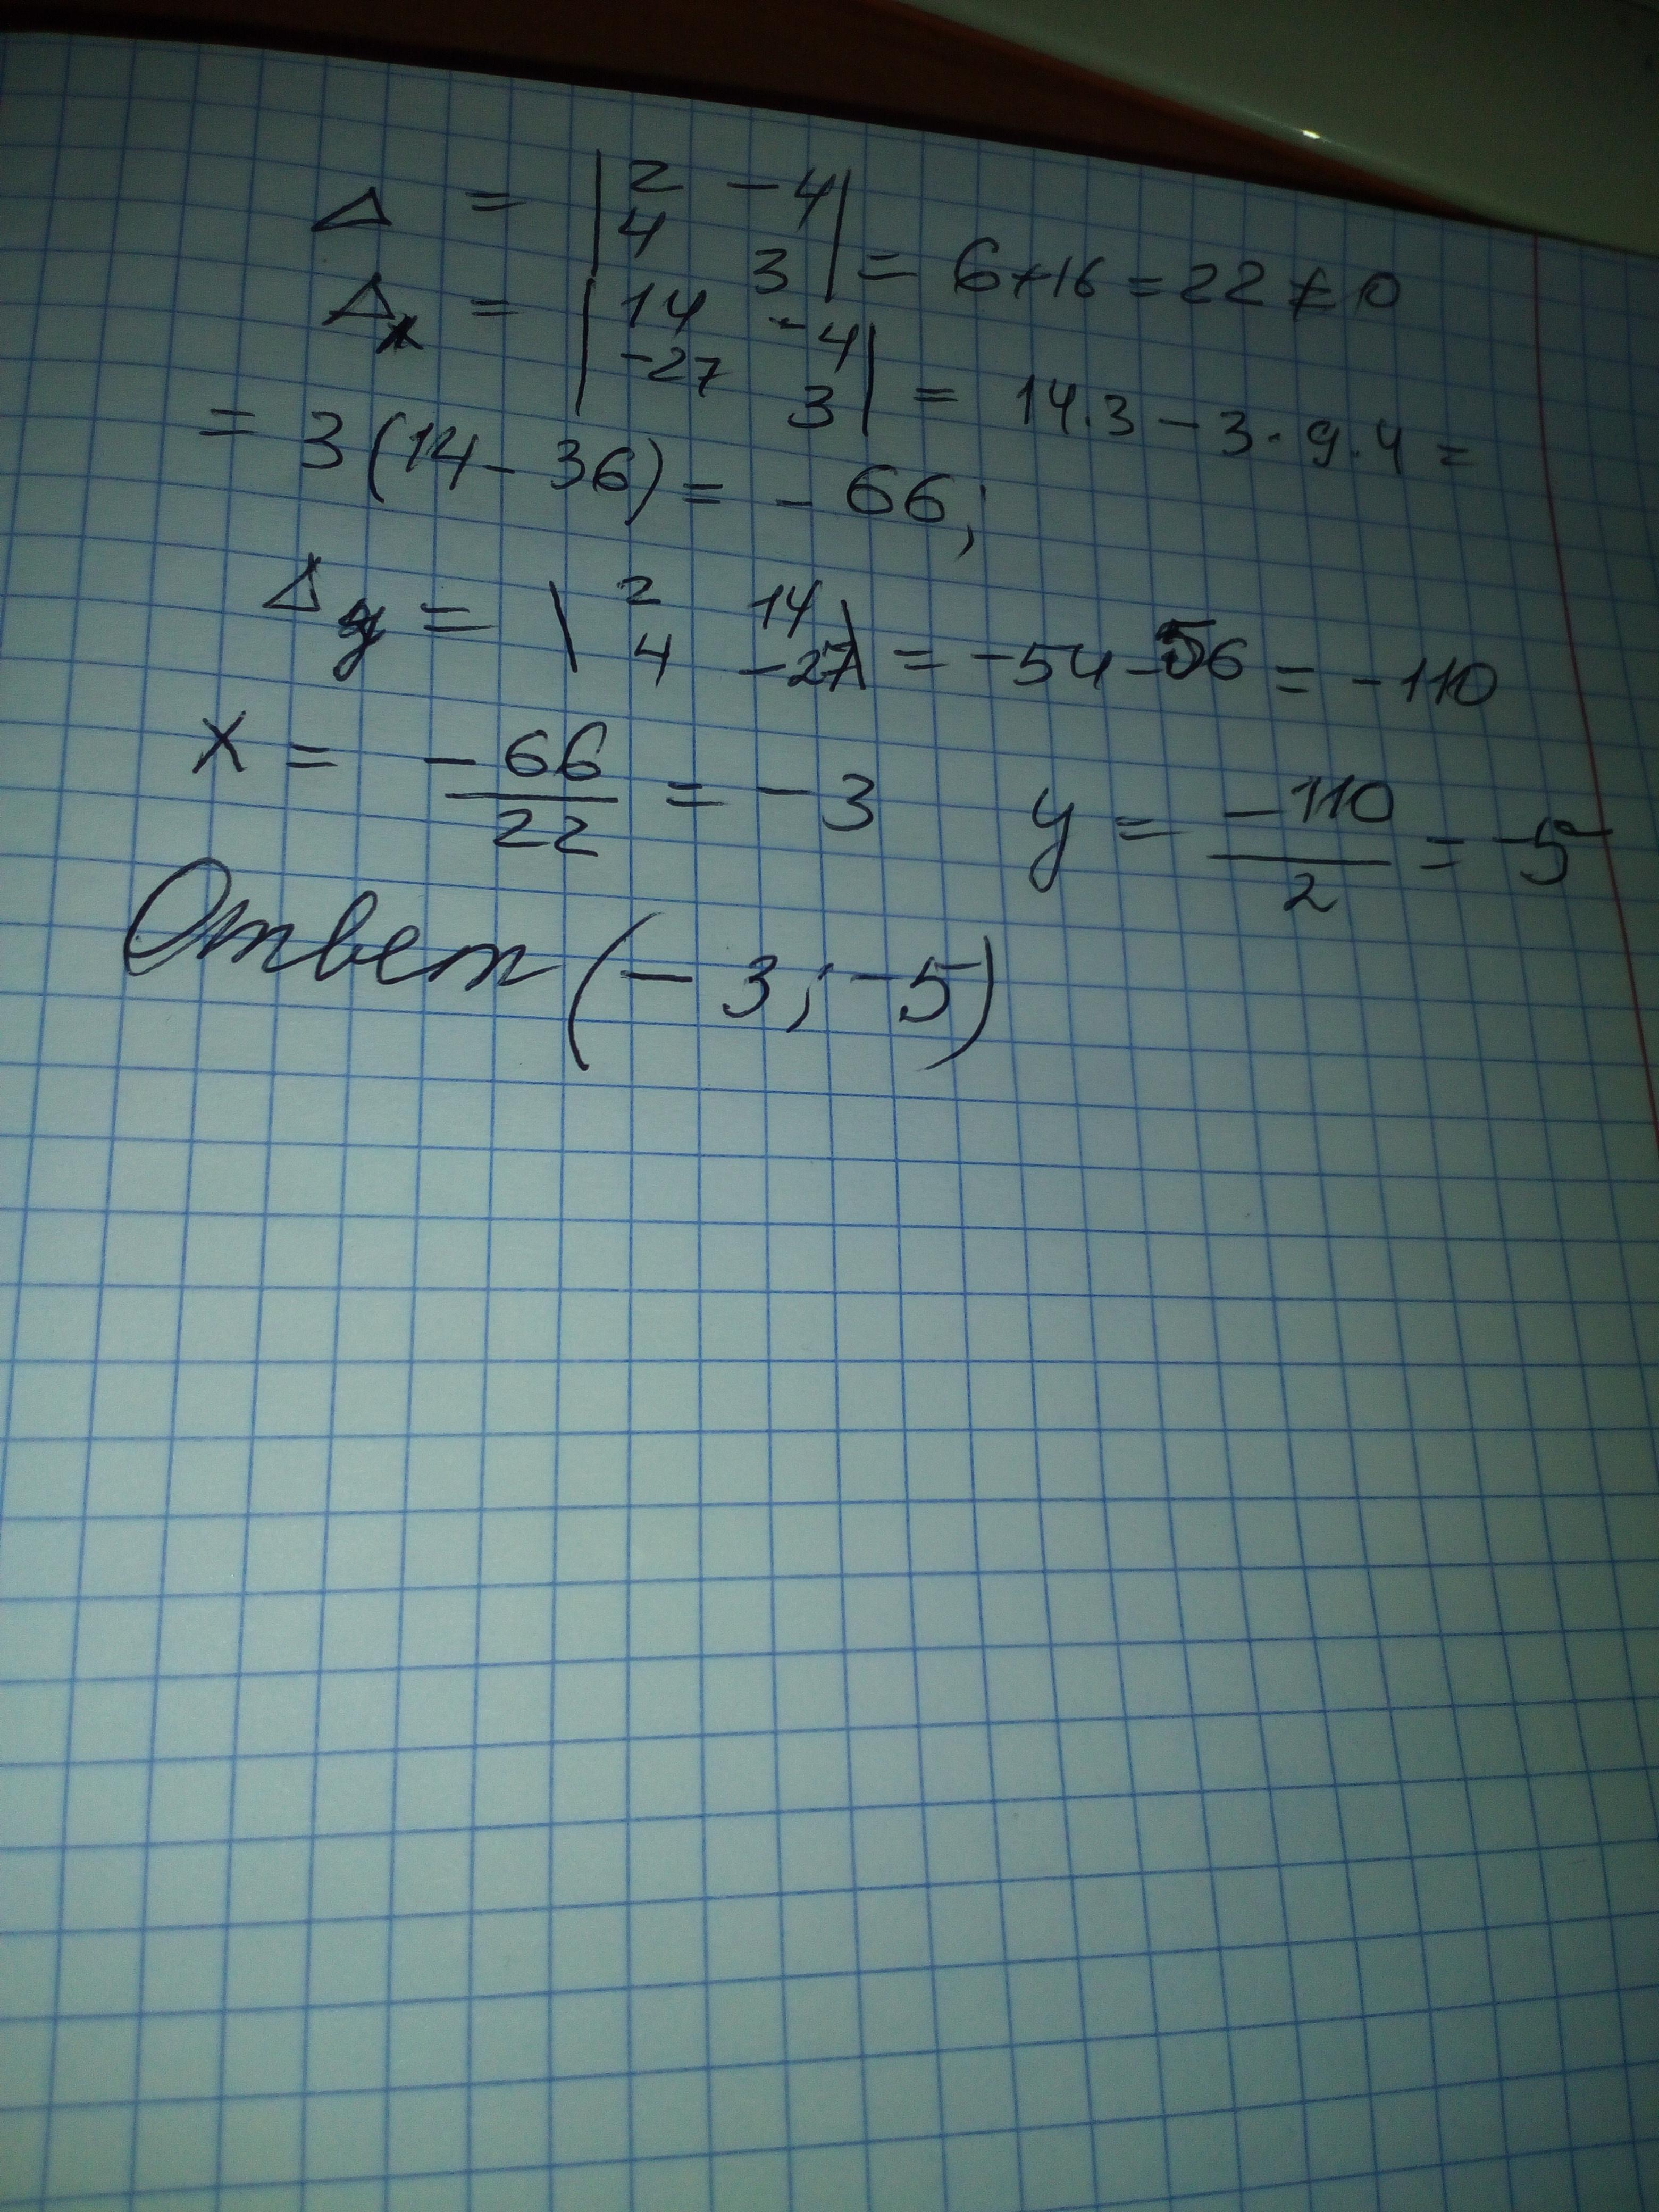 Δ = | 2 -4 |
| 4 3 | = 6+16 = 22 ≠ 0
Δx = | 14 -4 |
| -27 3 | = 14·3 - 3·9·4 =
= 3(14 - 36) = - 66;
Δy = | 2 14 |
| 4 -27 | = -54-56 = -110
x = -66/22 = -3 y = -110/2 = -5
Ответ (-3; -5)